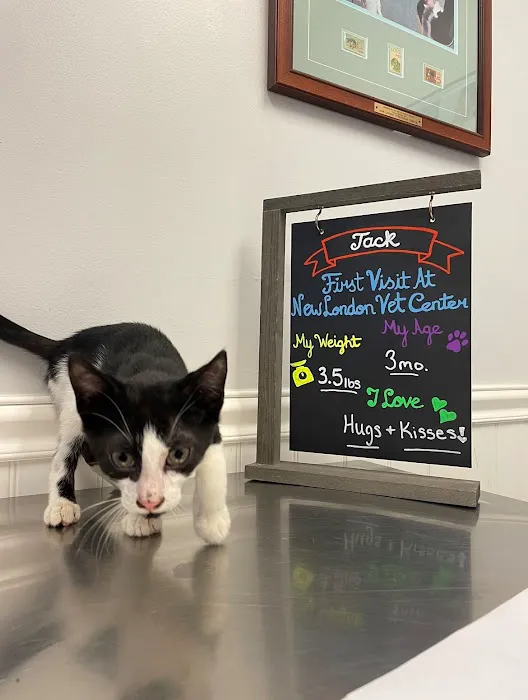 Jack
First Visit At
New London Vet Center
My Weight
My Age
3.5lbs
3mo.
I Love
Hugs + Kisses!